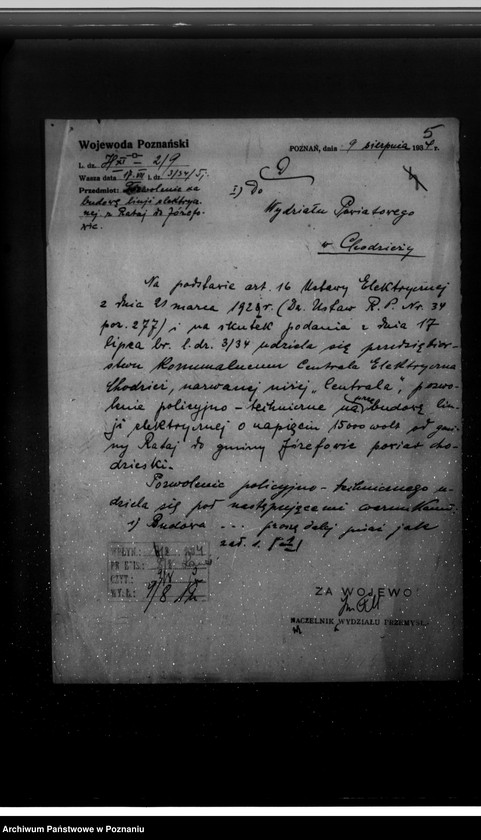 5
Wojewoda Poznański
POZNAŃ, dnia 9 sierpnia 1934 r.
L. dz. 2/9
Wasza data l. dz. 3/34
Przedmiot: Pozwolenie na
budowę linji elektrycz-
nej z Rataj do Józefo-
wic.
1) Do
Wydziału Powiatowego
w Chodzieży
Na podstawie art. 16 Ustawy Elektrycznej
z dnia 21 marca 1922 r. (Dz. Ustaw R. P. Nr. 34
poz. 277) i na skutek podania z dnia 17
lipca br. l. dz. 3/34 udziela się przedsiębior-
stwu Komunalnemu Centrala Elektryczna
Chodzież, nazwanej niżej „Centrala”, pozwo-
lenie policyjno-techniczne na budowę lin-
ji elektrycznej o napięciu 15000 wolt od gmi-
ny Rataj do gminy Józefowic powiat cho-
dzieski.
Pozwolenie policyjno-technicznego u-
dziela się pod następującemi warunkami:
1) Budowa ... proszę dalej pisać jak
zał. s.
WPŁYN.:
CZYT.:
WYSŁ.: 9/8
ZA WOJEWO
NACZELNIK WYDZIAŁU PRZEMYSŁ
Archiwum Państwowe w Poznaniu